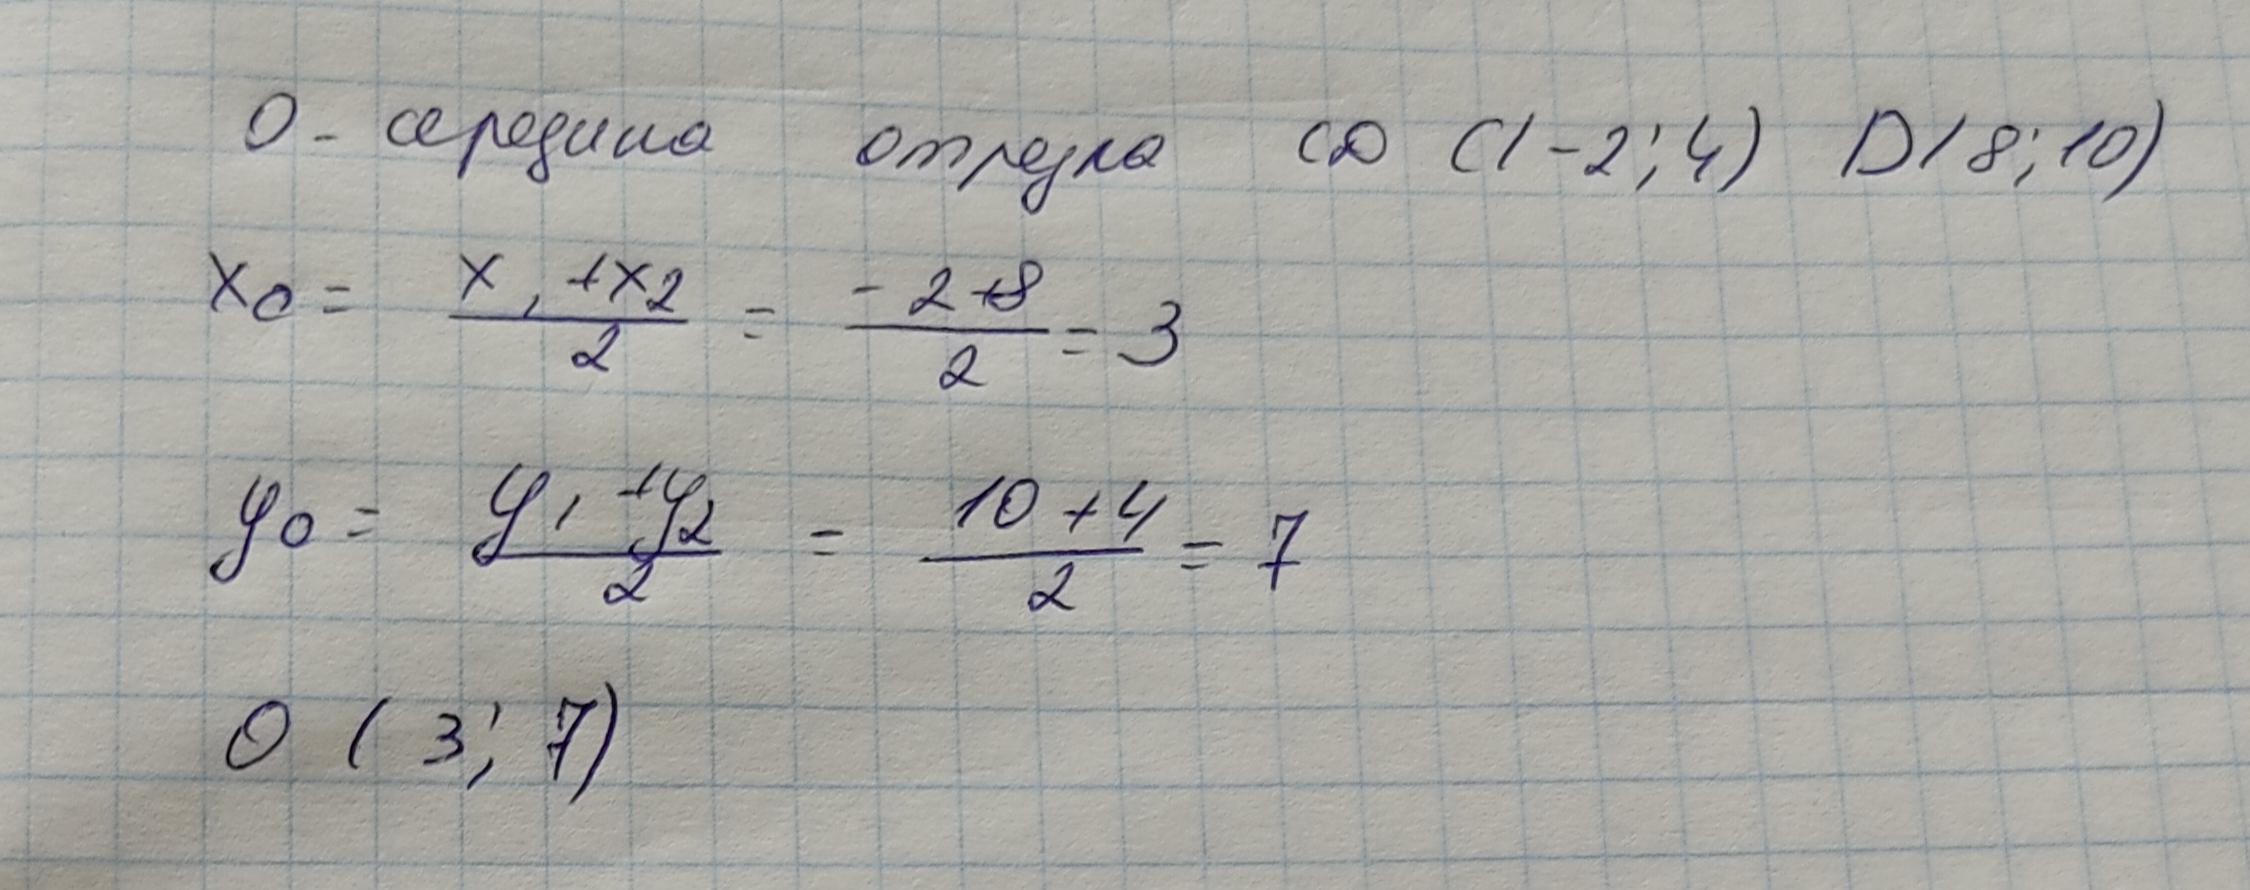 O - середина отрезка CD C(-2; 4) D(8; 10)
x₀ = (x₁ + x₂)/2 = (-2+8)/2 = 3
y₀ = (y₁ + y₂)/2 = (10+4)/2 = 7
O (3; 7)